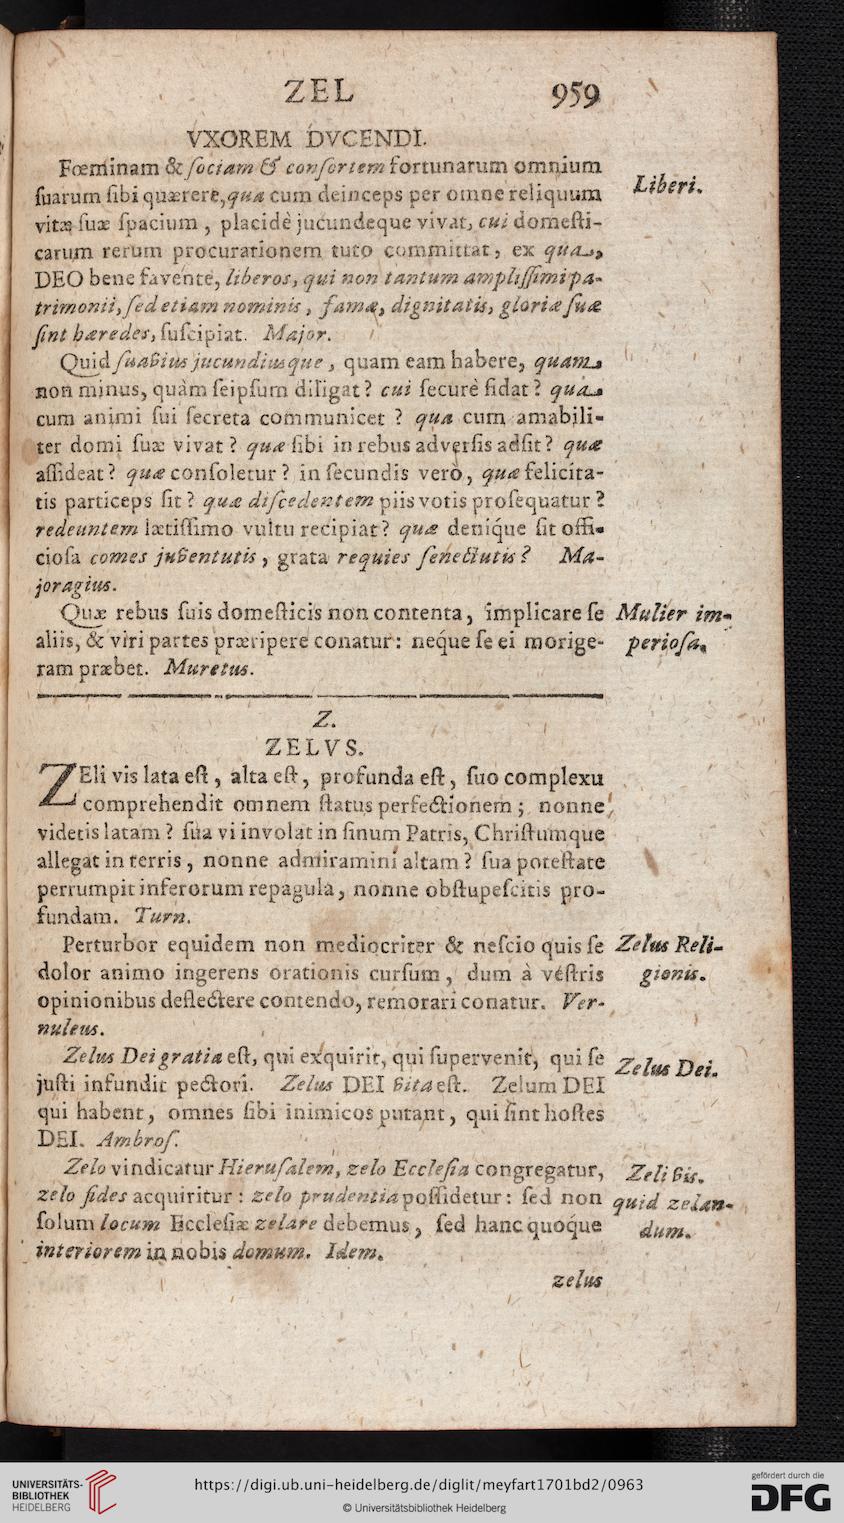 ZEL 959
VXOREM DVCENDI.
Fœminam & ſociam & conſortem fortunarum omnium
ſuarum ſibi quærere, qua cum deinceps per omne reliquum
Liberi.
vitæ ſuæ ſpacium, placidè jucundeque vivat, cui domeſti-
carum rerum procurationem tuto committat, ex qua,
DEO bene favente, liberos, qui non tantum ampliſſimi pa-
trimonii, ſed etiam nominis, famæ, dignitatis, gloriæ ſuæ
ſint hæredes, ſuſcipiat. Major.
Quid ſuavius jucundiusque, quam eam habere, quam
non minus, quàm ſeipſum diligat? cui ſecurè fidat? qua
cum animi ſui ſecreta communicet? qua cum amabili-
ter domi ſuæ vivat? quæ ſibi in rebus adverſis adſit? quæ
aſſideat? quæ conſoletur? in ſecundis verò, quæ felicita-
tis particeps ſit? quæ diſcedentem piis votis proſequatur?
redeuntem lætiſſimo vultu recipiat? quæ denique ſit offi-
cioſa comes juventutis, grata requies ſenectutis? Ma-
joragius.
Quæ rebus ſuis domeſticis non contenta, implicare ſe
aliis, & viri partes præripere conatur: neque ſe ei morige-
ram præbet. Muretus.
Mulier im-
perioſa.
Z.
ZELVS.
ZEli vis lata eſt, alta eſt, profunda eſt, ſuo complexu
comprehendit omnem ſtatus perfectionem; nonne
videtis latam? ſua vi involat in ſinum Patris, Chriſtumque
allegat in terris, nonne admiramini altam? ſua poteſtate
perrumpit inferorum repagula, nonne obſtupeſcitis pro-
fundam. Turn.
Perturbor equidem non mediocriter & neſcio quis ſe
dolor animo ingerens orationis curſum, dum à veſtris
opinionibus deflectere contendo, remorari conatur. Ver-
nuleus.
Zelus Reli-
gionis.
Zelus Dei gratia eſt, qui exquirit, qui ſupervenit, qui ſe
juſti infundit pectori. Zelus DEI vita eſt. Zelum DEI
qui habent, omnes ſibi inimicos putant, qui ſint hoſtes
DEI. Ambroſ.
Zelus Dei.
Zelo vindicatur Hieruſalem, zelo Eccleſia congregatur,
zelo fides acquiritur: zelo prudentia poſſidetur: ſed non
ſolum locum Eccleſiæ zelare debemus, ſed hanc quoque
interiorem in nobis domum. Idem.
Zeli vis.
quid zelan-
dum.
zelus
UNIVERSITÄTS-
BIBLIOTHEK
HEIDELBERG
https://digi.ub.uni-heidelberg.de/diglit/meyfart1701bd2/0963
© Universitätsbibliothek Heidelberg
gefördert durch die
DFG